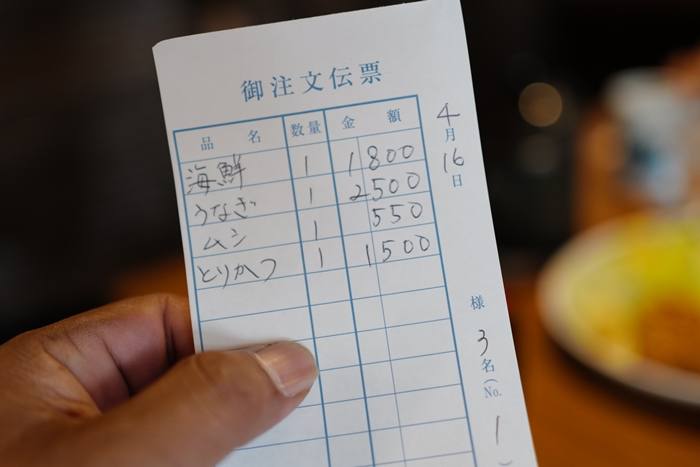 御注文伝票
品名 数量 金額
海鮮 1 1800
うなぎ 1 2500
ムシ 1 550
とりかつ 1 1500
4月16日
様
3名(No.
1
)